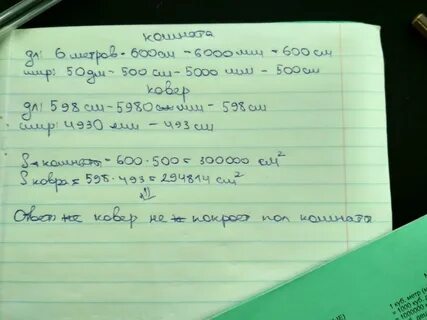 комната
дл: 6 метров - 600 см - 6000 мм = 600 см
шир: 50 дм - 500 см - 5000 мм - 500 см
ковер
дл: 598 см - 5980 мм - 598 см
шир: 4930 мм - 493 см
S комнаты - 600 · 500 = 300000 см²
S ковра = 598 · 493 = 294814 см²
⇓
Ответ: ковер не покроет пол комната
1 куб. метр
= 1000 куб.
= 1000000